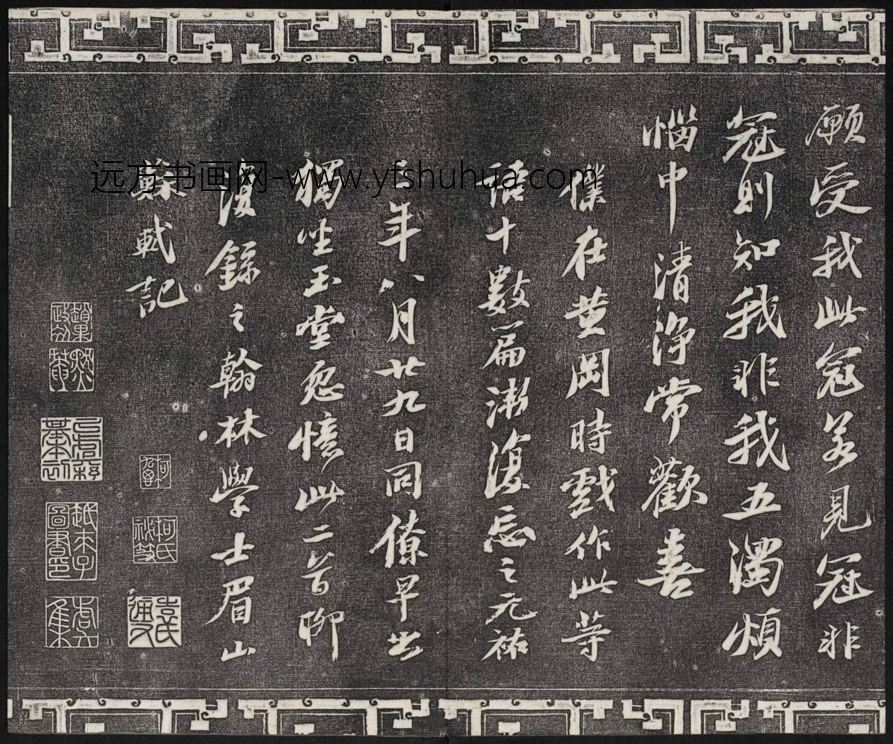 願受我此冠若見冠非
冠則知我非我五濁煩
惱中清淨常歡喜
僕在黃岡時戲作此等
語十數篇漸復忘之元祐
年八月廿九日同僚早出
獨坐玉堂忽憶此二首聊
復錄之翰林學士眉山
蘇軾記
远方书画网-www.yfshuhua.com